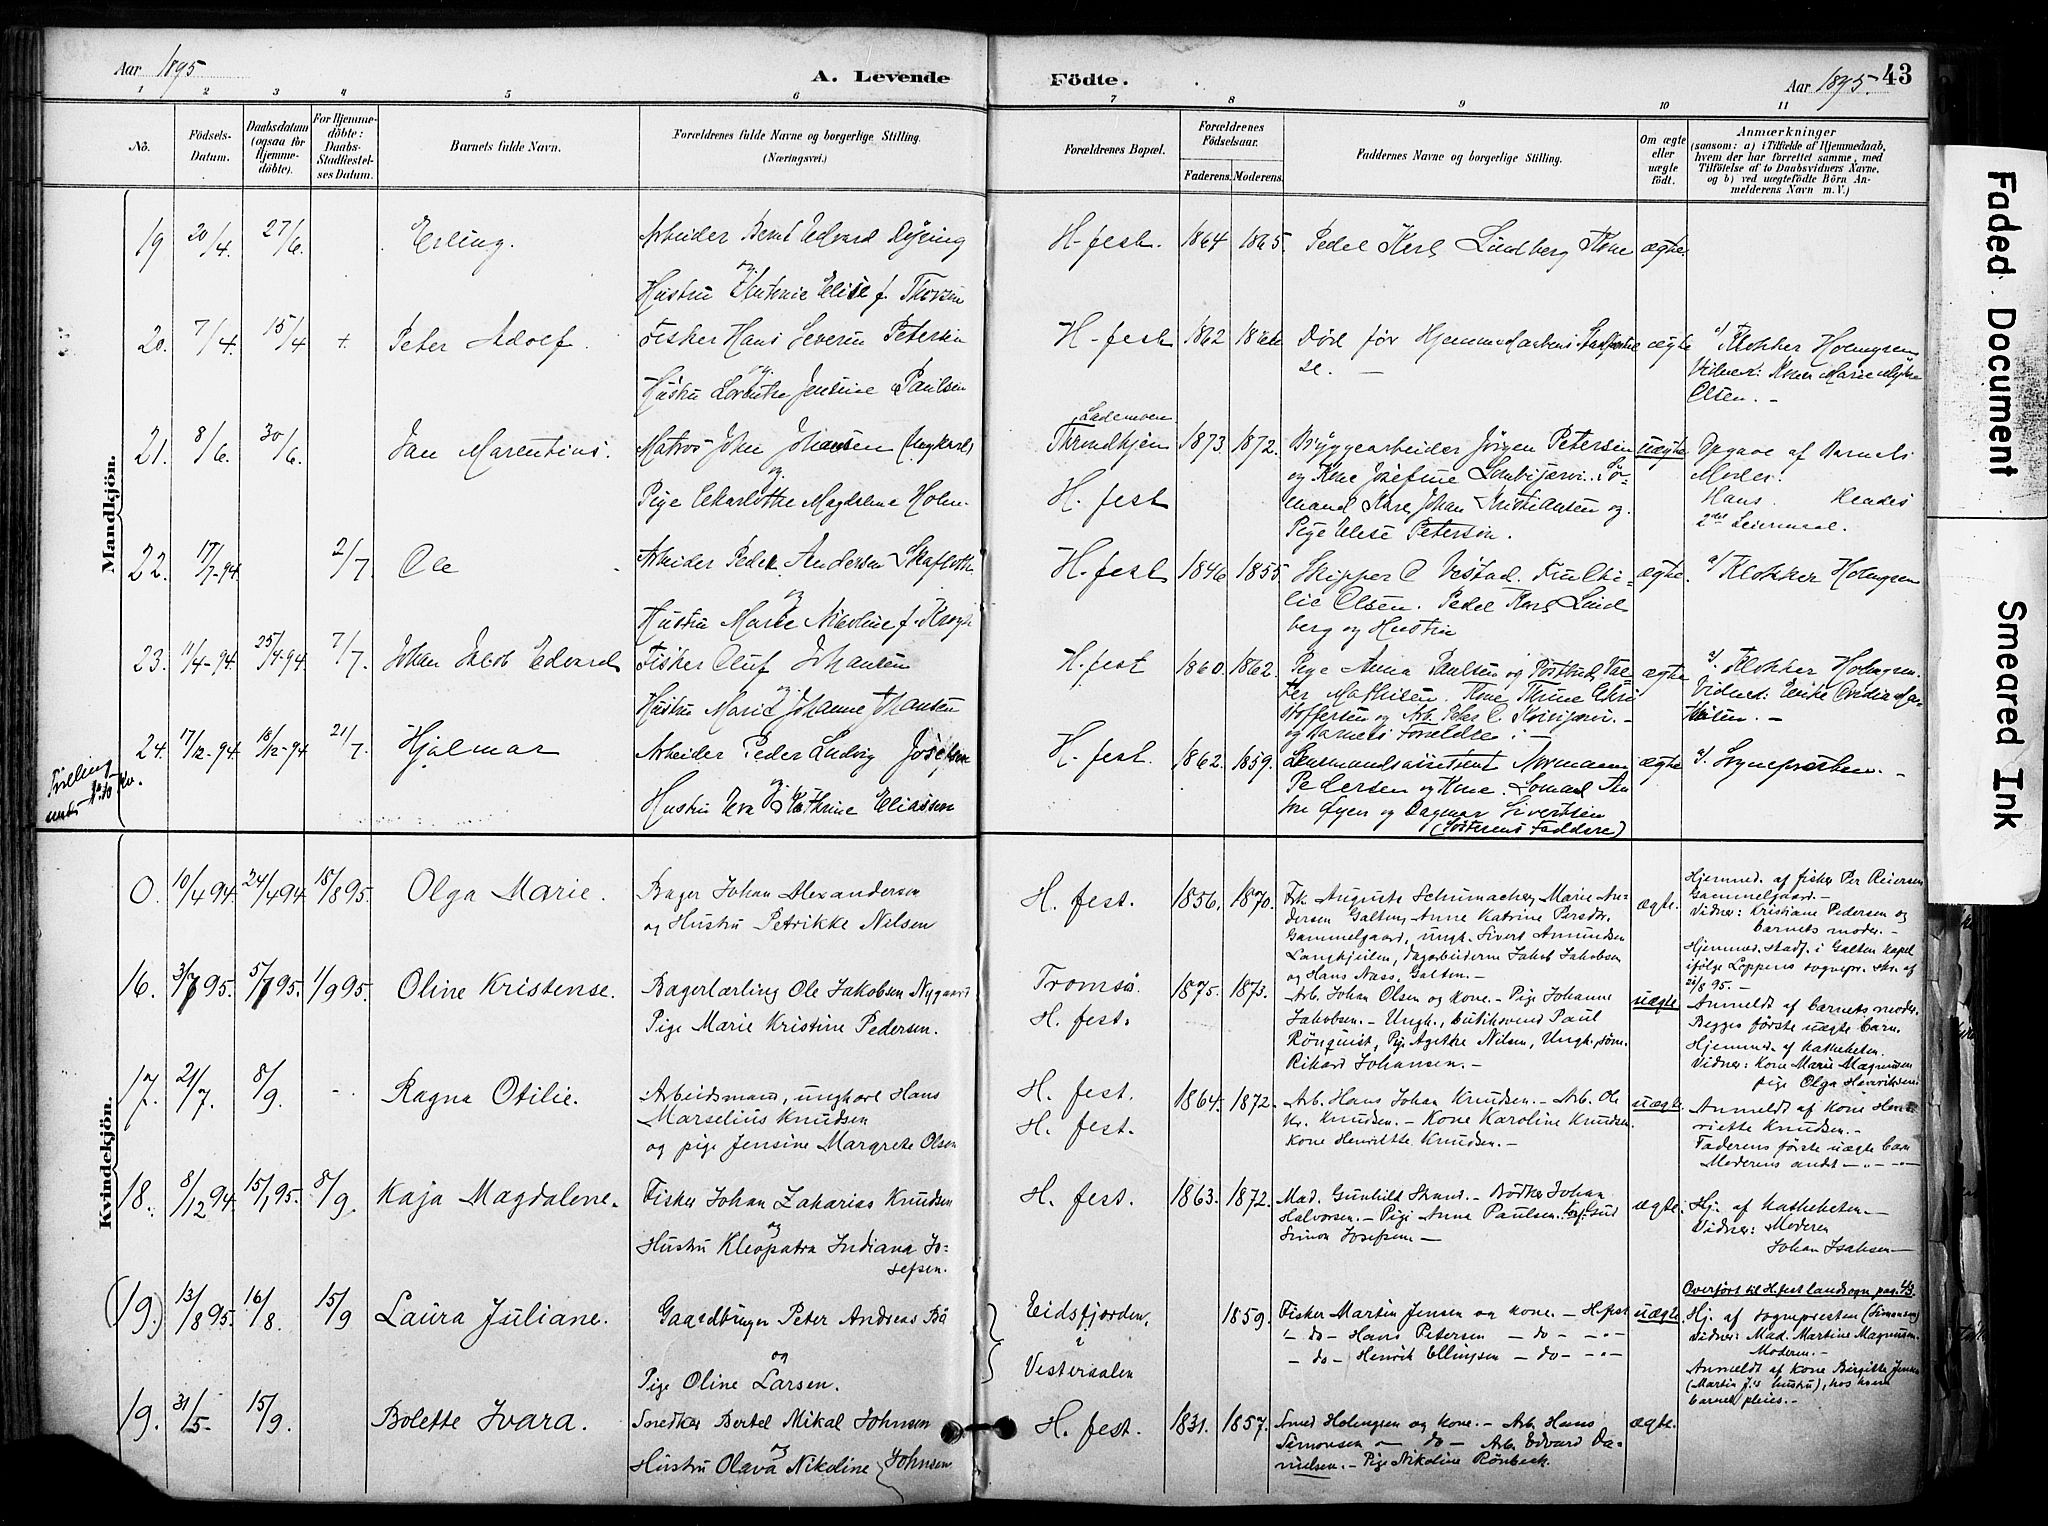 Aar 1895
A. Levende
Födte.
Aar 1895.
43
1 2 3 4 5 6 7 8 9 10 11
No.
Födsels-
Datum.
Daabsdatum
(ogsaa for
Hjemme-
döbte).
For Hjemme-
döbte:
Daabs-
Stadfæstel-
ses Datum.
Barnets fulde Navn.
Forældrenes fulde Navne og borgerlige Stilling.
(Næringsvei.)
Forældrenes Bopæl.
Forældrenes
Födselsaar.
Faderens. Moderens.
Faddernes Navne og borgerlige Stilling.
Om ægte
eller
uægte
födt.
Anmærkninger
(saasom: a) i Tilfælde af Hjemmedaab,
hvem der har forrettet samme, med
Tilföielse af to Daabsvidners Navne,
og b) ved uægtefödte Börn An-
melderens Navn m. V.)
Mandkjön.
19 20/4. 27/6. Erling. Arbeider Bernt Edvard Dyring
og
Hustru Antonie Elise f. Thorsen
H. fest. 1864 1865. Pedel Karl Lindberg Kone ægte
20. 7/4. 15/4 + Peter Adolf. Fisker Hans Severin Petersen
og
Hustru Jensine Paulsen
H-fest 1862 Död før
se. –
ægte
a/ Klokker Holmgren
Vidner: Kone Marie
Olsen. –
21. 8/6. 30/6. Jan Marentius. Matros John Johansen (Ungkarl)
og
Pige Charlotte Magdalene Holm.
Lademoen
Throndhjem
H. fest
1873 1872. Bryggearbeider Jörgen Petersen
og Kone Josefine Sö-
mand Kare Johan Kristiansen og
Pige Elise Petersen.
uægte
Opgave af Barnets
Moder.
Hans Hendes
2det Leiermaal.
22. 17/7-94. 2/7. Ole Arbeider Peder Andersen
og
Hustru Marie Nicoline f. Krogh
H. fest 1846 1855. Skipper O Vestad.
Olsen. Pedel Karl Lind
berg og Hustru
ægte. a/ Klokker Holmgren
23. 11/4-94. 25/4-94 7/7. Johan Jakob Edvard Fisker Oluf Johansen
og
Hustru Marie Johanne Johansen
H. fest 1860. 1862. Pige Anna Paulsen og Postbud
Mathisen. Kone Thrine Chri
stoffersen og Arb. Peter C.
og Barnets Forældre. –
ægte a/. Klokker Holmgren.
Vidner:
24. 17/12-94. 18/12-94 21/7. Hjalmar Arbeider Peder Ludvig Josefsen
og
Hustru Eva Kathrine Eliassen
H. fest. 1862. 1859. Lensmandsassistent Normann
Pedersen og Kone. An
ton Öyen og Dagmar Sivertsen
(Søsterens Faddere)
ægte a/. Sognepresten. –
Tvilling
under No 10 Kv.
Kvindekjön.
0. 10/4 94. 24/4 94 18/8 95. Olga Marie. Bager Johan Alexandersen
og Hustru Petrikke Nilsen
H. fest. 1856. 1870. Frk Auguste Schumacher, Marie An-
dersen Galten, Anne Katrine Persdr.
Gammelgaard, ungk. Sivert Amundsen
Langkjeilen, dagarbeiderne Jakob Jakobsen
og Hans Nass, Galten. –
ægte.
Hjemmed. af fisker Per Reiersen
Gammelgaard. –
Vidner: Kristiane Pedersen og
barnets moder. –
Hjemmed. stadf. i Galten kapel
ifölge Loppens sognepr. skr. af
25/8 95. –
16. 3/7 95. 5/7 95. 1/9 95. Oline Kristense. Bagerlærling Ole Jakobsen Nygaard
Pige Marie Kristine Pedersen.
Tromsö.
H. fest.
1875. 1873. Arb. Johan Olsen og kone. – Pige Johanne
Jakobsen. – Ungk., butikbetj. Paul
Rönquist, Pige Agethe Nilsen, Ungk. sôm.
Rikard Johansen. –
uægte
Anmeldt af barnets moder.
Begges förste uægte barn.
Hjemmed. af Katheketen.
Vidner: Kone Marie Magnussen
pige Olga Henriksen.
17. 21/7. 8/9. -. Ragna Otilie. Arbeidsmand, ungkarl Hans
Marselius Knudsen
og pige Jensine Margrete Olsen
H. fest.
H. fest.
1864. 1872. Arb. Hans Johan Knudsen. – Arb. Ole
Kr. Knudsen. – Kone Karoline Knudsen.
Kone Henriette Knudsen. –
uægte.
Anmeldt af Kone Hen-
riette Knudsen. –
Faderens förste uægte barn
Moderens andet – " – " –
18. 8/12 94. 15/1 95. 8/9. Kaja Magdalene. Fisker Johan Zakarias Knudsen
og
Hustru Kleopatra Indiana Jo-
sefsen.
H. fest. 1863. 1872. Mad. Gunhild Strand. – Bödker Johan
Halvorsen. – Pige Anna Paulsen.
Simon Josefsen –
ægte. Hj. af Katheketen. –
Vidner: Moderen
Johan Isaksen –
Overført til H.fest landsogn pag. 43.
(19.) 13/8 95. 16/8. 15/9 Laura Juliane. Gaardbruger Peter Andreas Bå
og
Pige Oline Larsen.
Eidsfjorden,
i
Vesteraalen
1859. Fisker Martin Jensen og kone. – H.fest
" – do – Hans Petersen – do – – " –
– do – Henrik Ellingsen – do – – " –
uægte
Hj. af sognepresten (Simonsen)
Vidner: Mad. Martine Magnussen.
Moderen. –
Anmeldt af Kone Birgitte Jensen
(Martin J.s hustru), hos hvem
barnet pleies. –
19. 31/5. 15/9. Bolette Ivara. Snedker Bertel Mikal Johnsen
og
Hustru Olava Nikoline Johnsen
H. fest. 1831. 1857. Smed Holmgren og kone. – Arb. Hans
Simonsen – do – Arb. Edvard Da-
nielsen. – Pige Nikoline Rönbeck.
ægte.
Faded Document
Smeared Ink